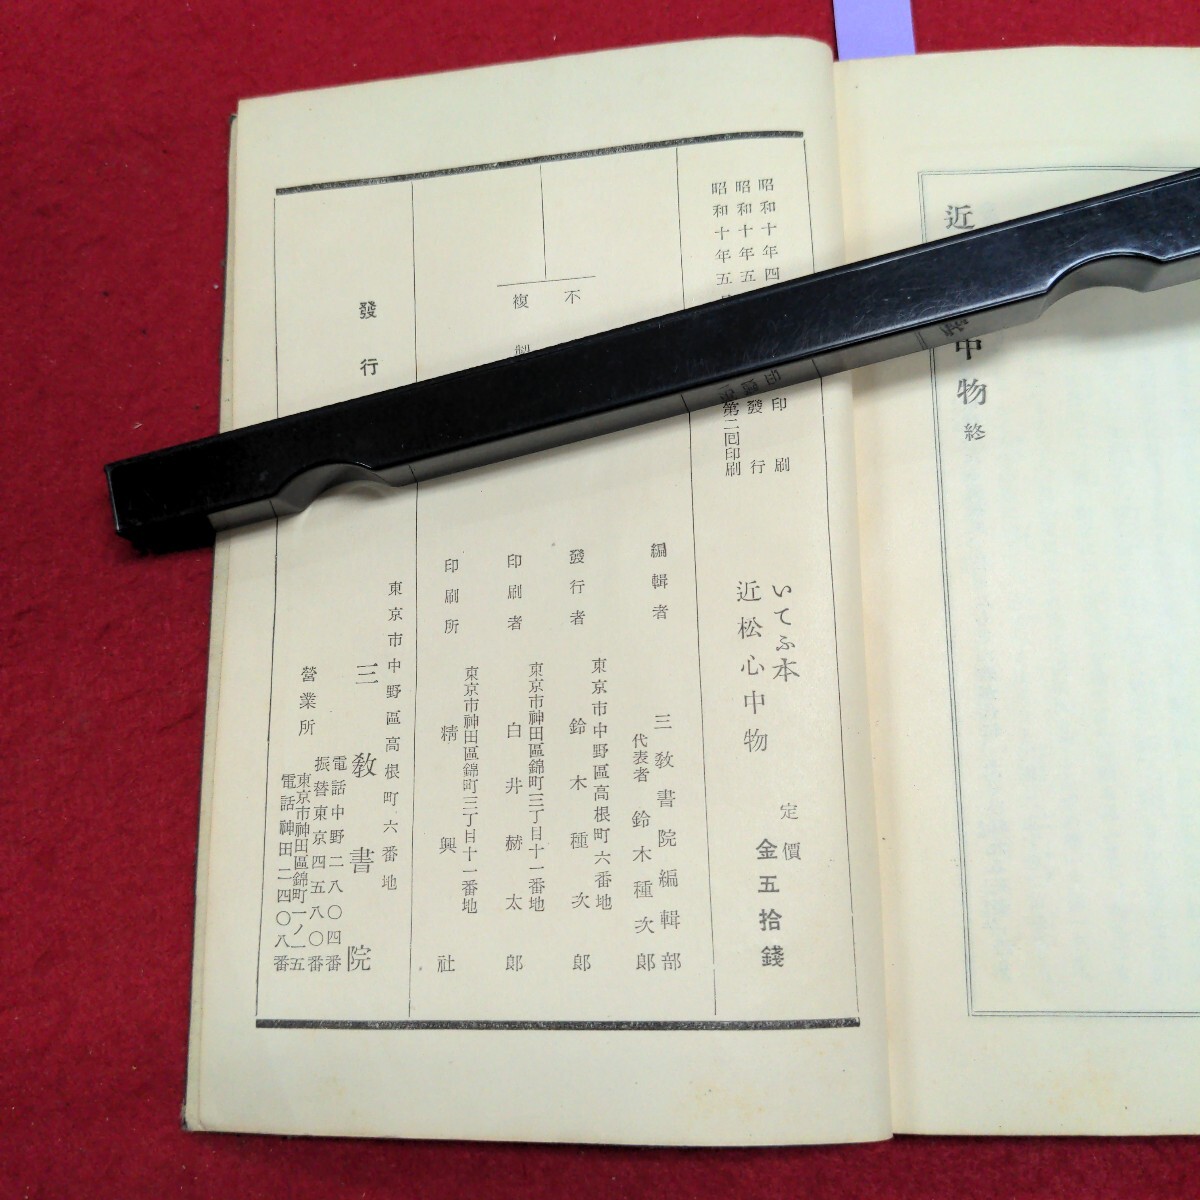 近
中物 終
昭和十年四
印刷
昭和十年五
發行
昭和十年五
第二回印刷
いてふ本
近松心中物
定價
金五拾錢
不
複
編輯者
三敎書院編輯部
代表者 鈴木種次郎
發行者
東京市中野區高根町六番地
鈴木種次郎
印刷者
東京市神田區錦町三丁目十一番地
白井赫太郎
印刷所
東京市神田區錦町三丁目十一番地
精興社
發行
東京市中野區高根町六番地
三敎書院
電話中野二八〇四番
振替東京四五八〇番
營業所
東京市神田區錦町一ノ一五
電話神田二四〇八番